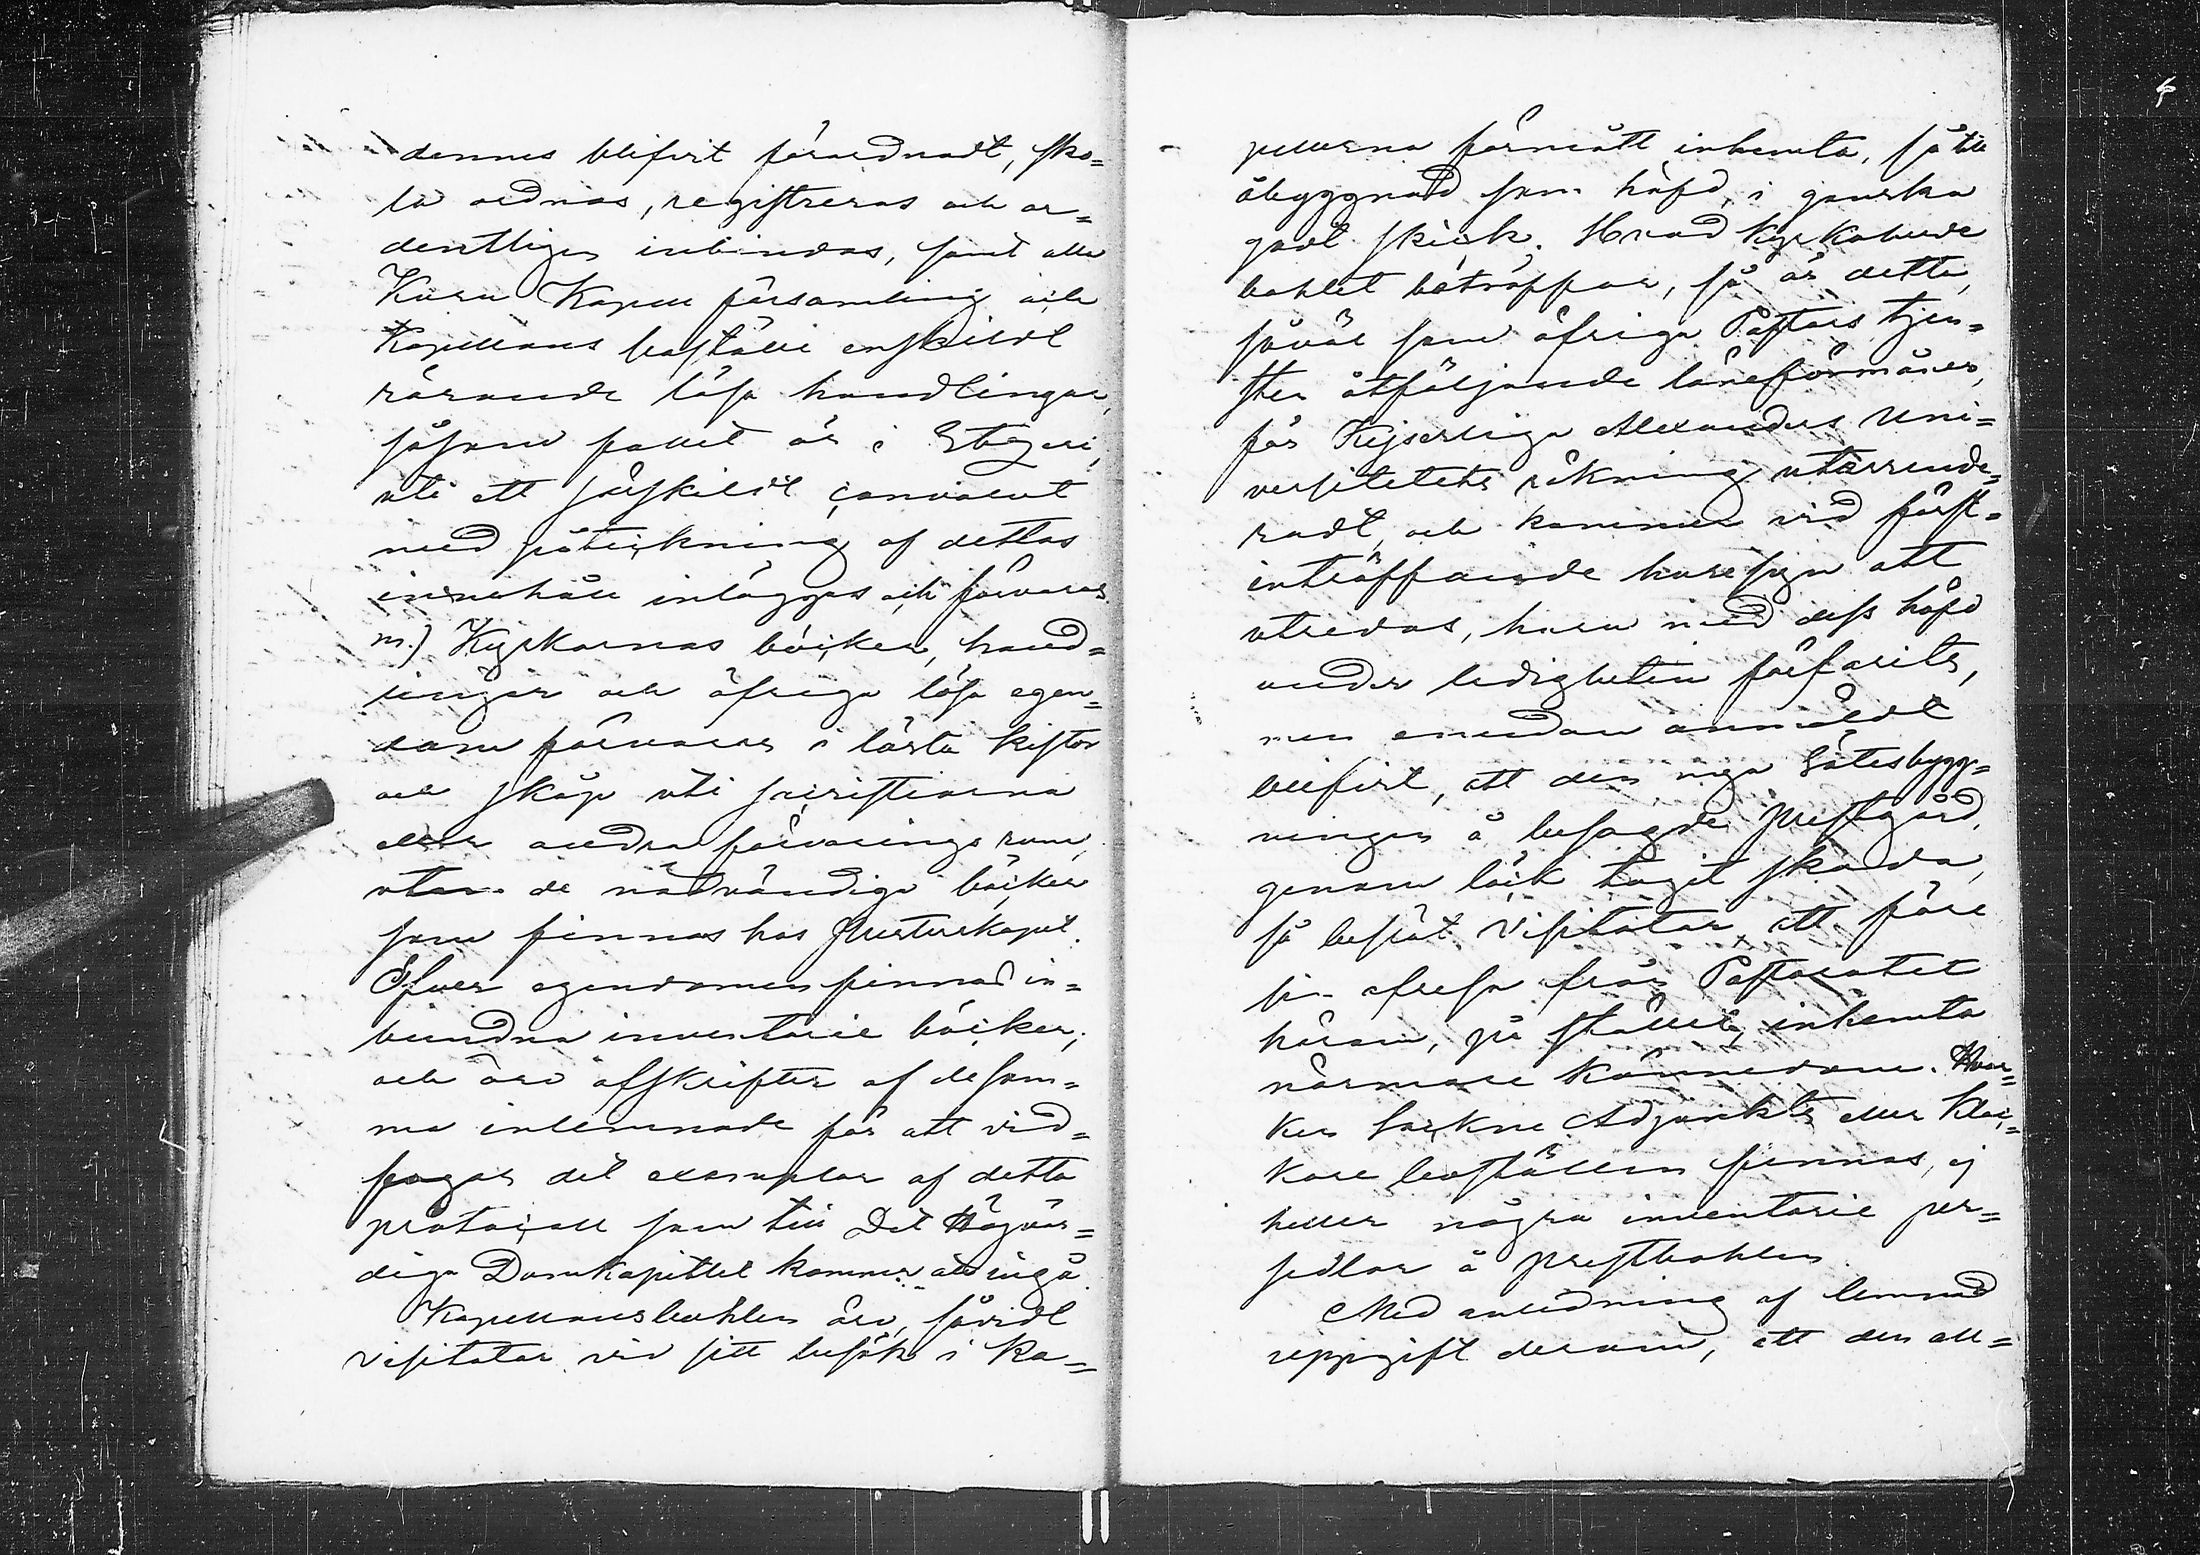 dennes blifvit förordnadt, sko=
la ordnas, registreras och or=
dentligen inbindas, samt alla
Kuru Kapell församling och
Kapellans boställe enskildt
rörande lösa handlingar,
såsom fallet är i
uti ett särskildt convolut
med påteckning af dettas
innehåll inläggas och förvaras.
m.) Kyrkornas böcker, hand=
lingar och öfriga lösa egen=
dom förvaras i låsta kistor
och skåp uti sacristiorna
eller andra förvarings rum,
utom de nödvändiga böcker
som finnas hos Presterskapet.
Öfver egendomen finnas in=
bundna inventarie böcker,
och äro afskrifter af desam=
ma inlemnade för att vid=
fogas det exemplar af detta
protocoll som till Det Högvör=
diga Domkapitlet kommer att ingå.
Kapellansbohlen äro, såvidt
Visitator vid sitt besök i Ka=
pellerna förmått inhemta, så till
åbyggnad som häfd, i ganska
godt skick. Hvad Kyrkoherde
bohlet beträffar, så är detta,
såväl som öfriga Pastors tjen=
sten åtföljande löneförmåner,
för Kejserliga Alexanders Uni=
versitetets räkning utarrende=
radt, och kommer vid först=
inträffande husesyn att
utredas, huru med dess häfd
under ledigheten förfarits,
men emedan anmäldt
blifvit, att den nya Sätesbygg=
ningen å besagde Prestgård,
genom läck tagit skada,
så beslöt Visitator, att före
sin afresa från Pastoratet
härom, på stället, inhemta
närmare kännedom. Hvar=
ken Sockne Adjunkts eller Kloc=
kare boställen finnas, ej
heller några inventarie per=
sedlar å prestbohlen.
Med anledning af lemnad
uppgift derom, att den all=